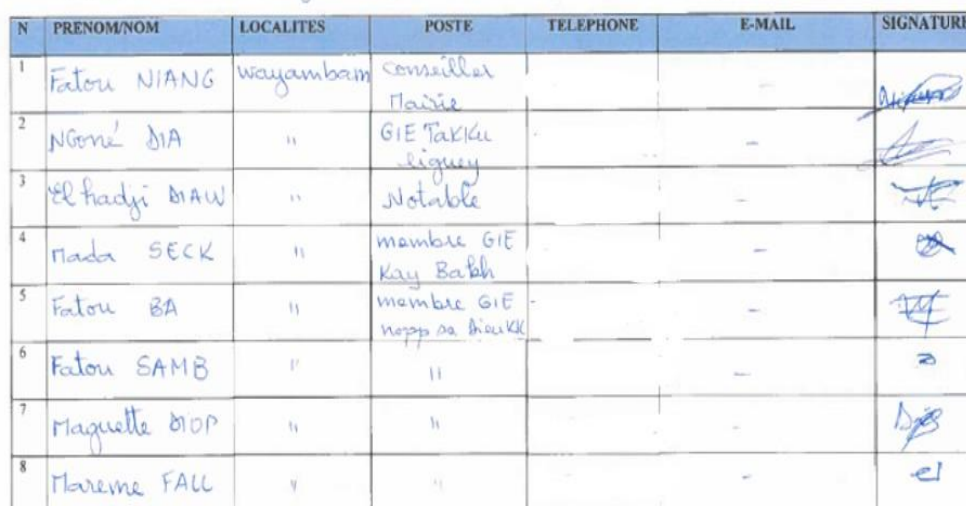 N PRENOM/NOM LOCALITES POSTE TELEPHONE E-MAIL SIGNATURE
1 Fatou NIANG Wayambam Conseiller
Mairie -
2 NGoné DIA " GIE Takku
liguey -
3 El hadji DIAW " Notable -
4 Mada SECK " membre GIE
Kay Bakh -
5 Fatou BA " membre GIE
nopp sa Dieukk -
6 Fatou SAMB " " -
7 Maguette DIOP " " -
8 Mareme FALL " " -